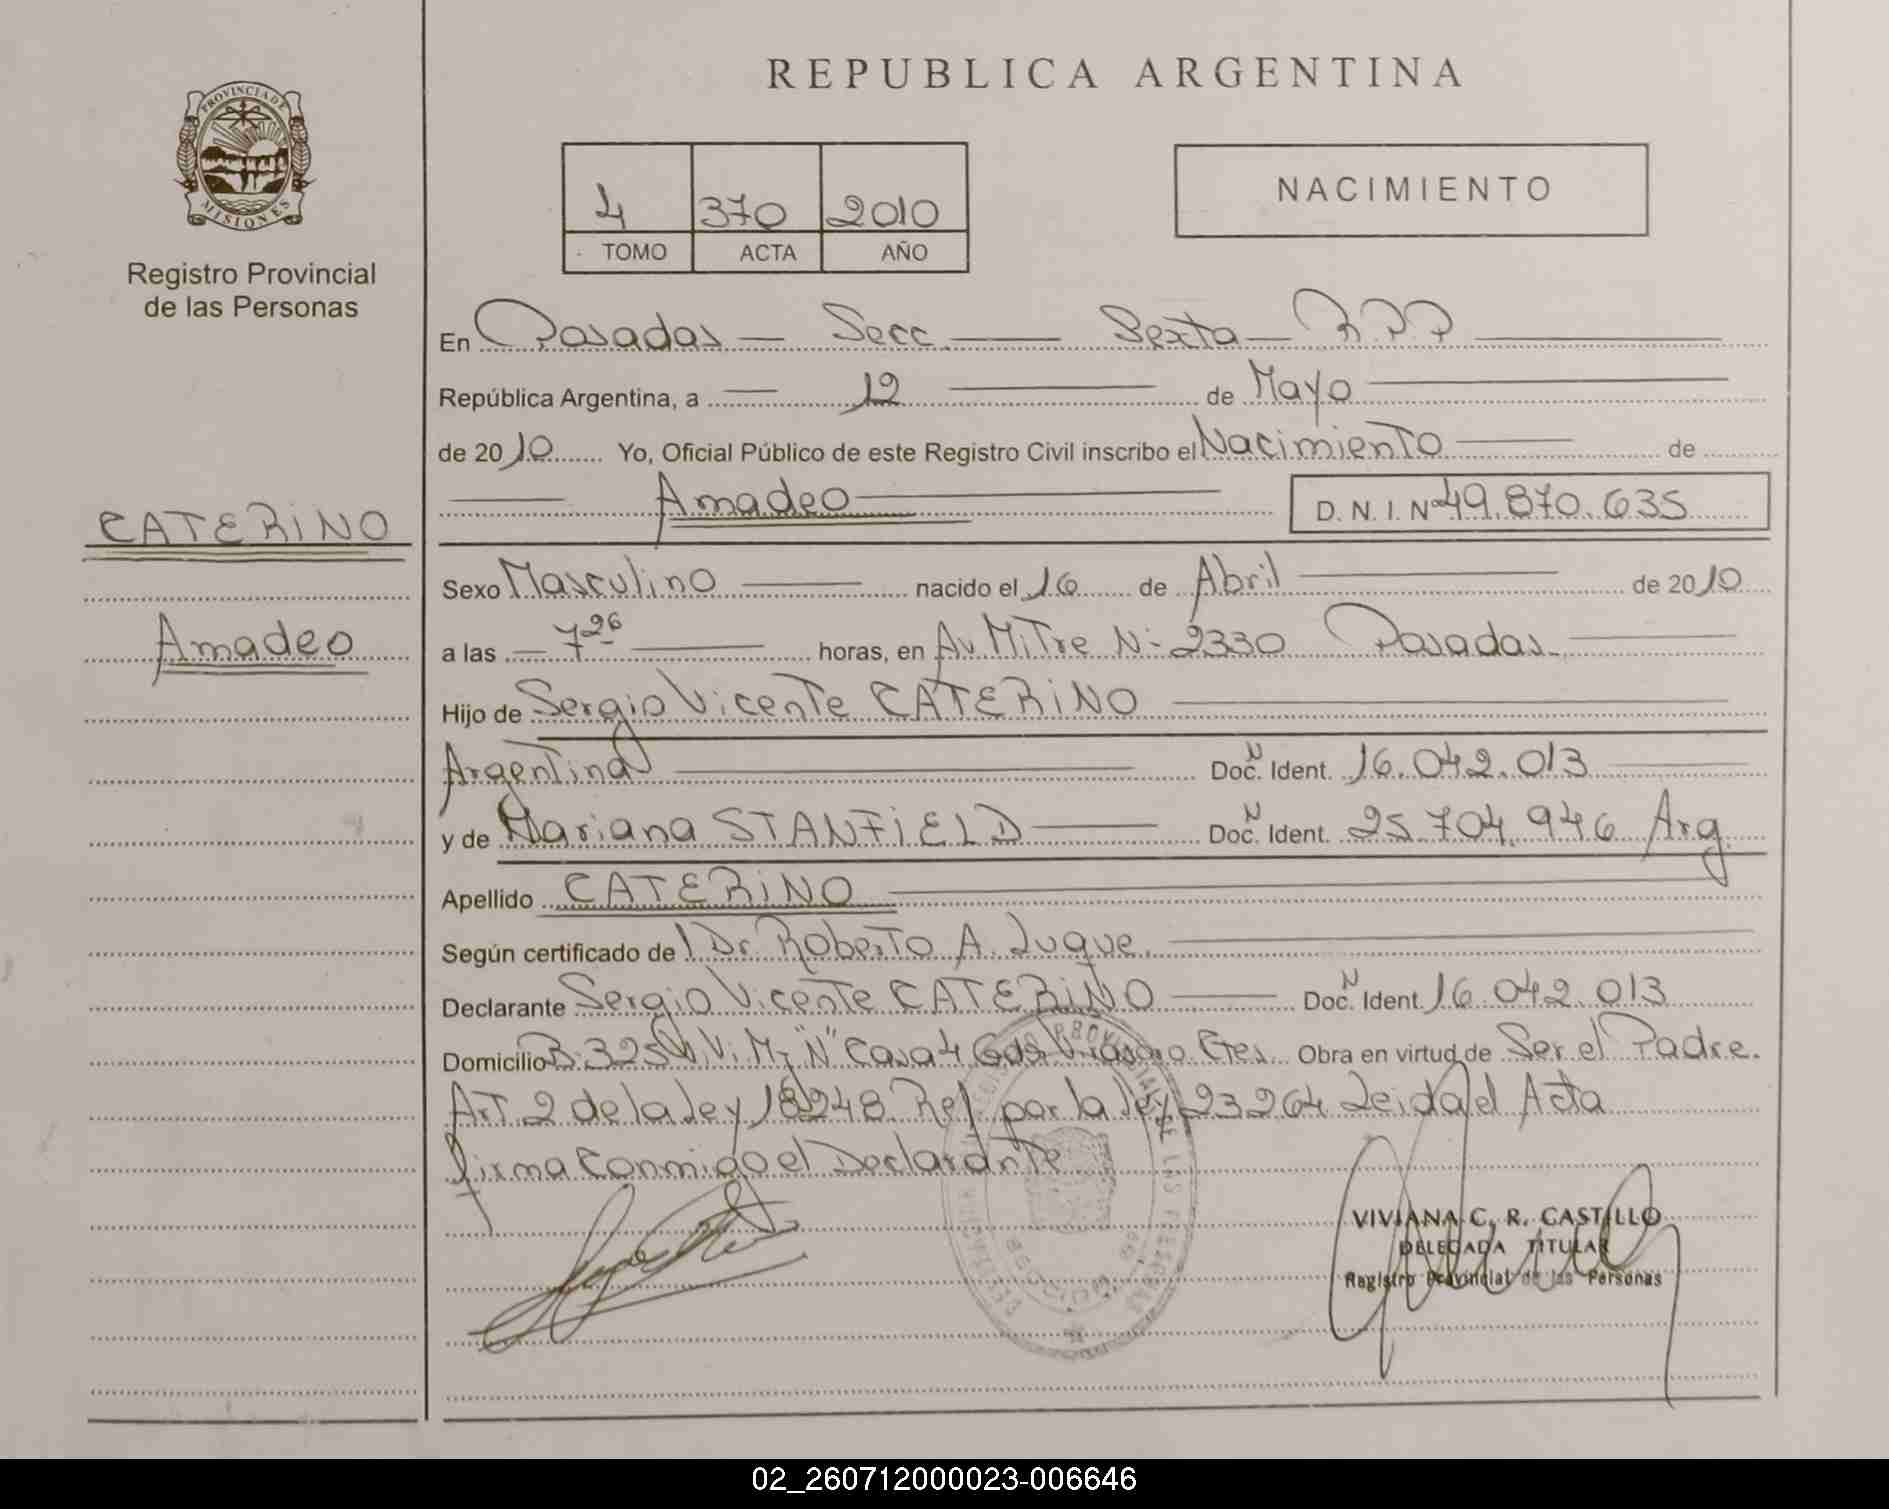 REPUBLICA ARGENTINA
PROVINCIA DE
MISIONES
Registro Provincial
de las Personas
4 370 2010
TOMO ACTA AÑO
NACIMIENTO
En Posadas — Secc — Sexta — R.P.P
República Argentina, a — 12 — de Mayo
de 2010 Yo, Oficial Público de este Registro Civil inscribo el Nacimiento — de
Amadeo — D. N. I. Nº 49.870.635
CATERINO
Amadeo
Sexo Masculino — nacido el 16 de Abril — de 2010
a las — 7 26 — horas, en Av Mitre Nº 2330 Posadas —
Hijo de Sergio Vicente CATERINO
Argentina — Doc. N Ident. 16.042.013
y de Mariana STANFIELD — Doc. N Ident. 25 704.946 Arg
Apellido CATERINO
Según certificado de Dr. Roberto A. Luque.
Declarante Sergio Vicente CATERINO — Doc. N Ident. 16 042.013
Domicilio B. 325 Vi. Mz "N" Casa 4 Gdor Virasoro Ctes. Obra en virtud de Ser el Padre.
Art. 2 de la Ley 18248 Ref. por la ley 23264 Leida el Acta
firma conmigo el Declarante
VIVIANA C. R. CASTILLO
DELEGADA TITULAR
Registro Provincial de las Personas
02_260712000023-006646